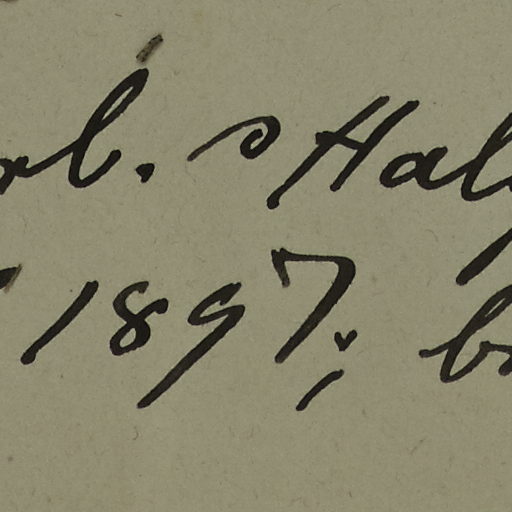 rb. Hal
1897; b